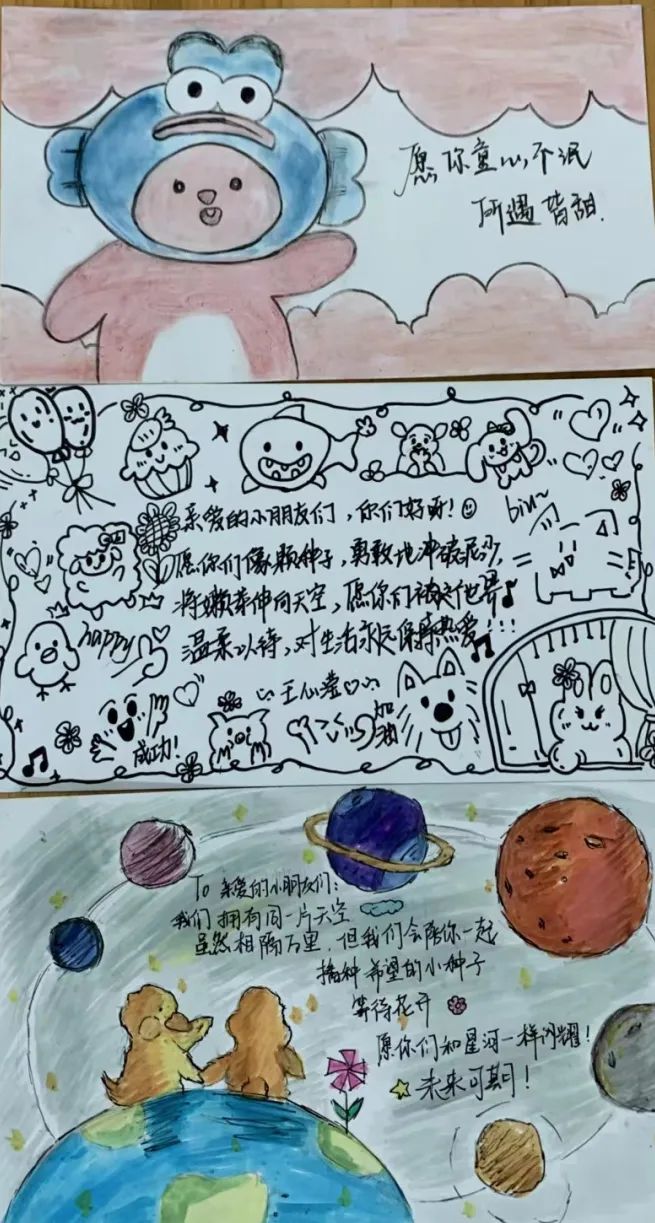 愿你童心不泯
所遇皆甜.
亲爱的小朋友们，你们好呀！
biu~
愿你们像颗种子，勇敢地冲破泥沙，
将嫩芽伸向天空，愿你们被这世界
温柔以待，对生活永远保持热爱!!!
happy
王心滢
加油
成功!
To 亲爱的小朋友们：
我们拥有同一片天空
虽然相隔万里，但我们会陪你一起
播种希望的小种子
等待花开
愿你们和星河一样闪耀！
未来可期！